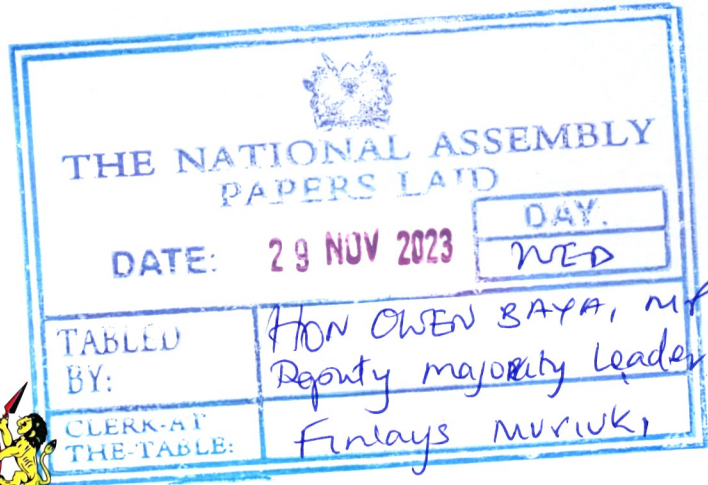 THE NATIONAL ASSEMBLY
PAPERS LAID
DATE: 29 NOV 2023
DAY.
WED
TABLED
BY:
HON OWEN BAYA, MP
Deputy majority Leader
CLERK-AT
THE-TABLE:
Finlays MURIUKI